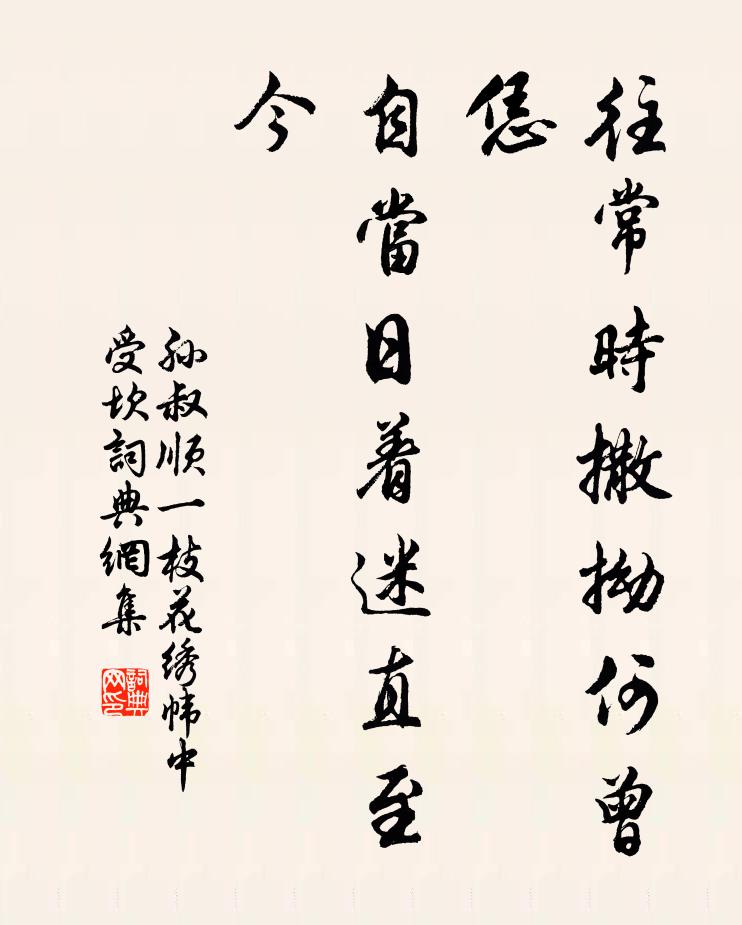 往常時撒拗何曾
恁
自當日着迷直至
今
孙叔顺一枝花绣帏中
受坎詞典網集
詞典
网印